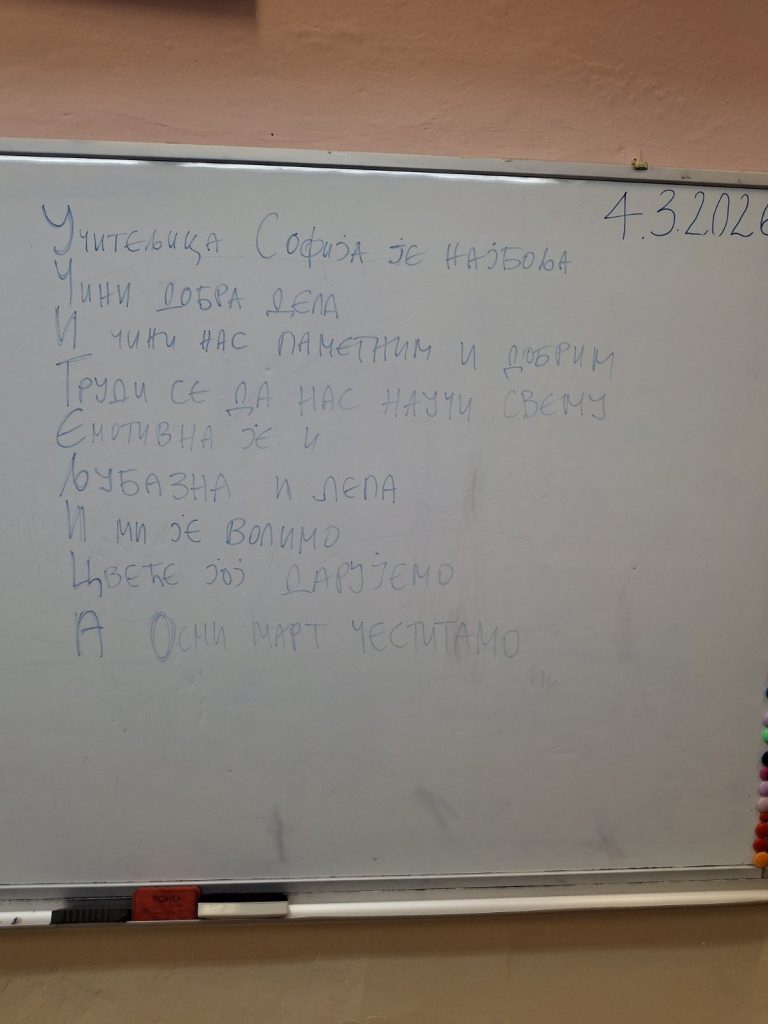 4.3.2026
Учитељица Софија је најбоља
Чини добра дела
И чини нас паметним и добрим
Труди се да нас научи свему
Емотивна је и
Љубазна и лепа
И ми је волимо
Цвеће јој дарујемо
А Осми март честитамо